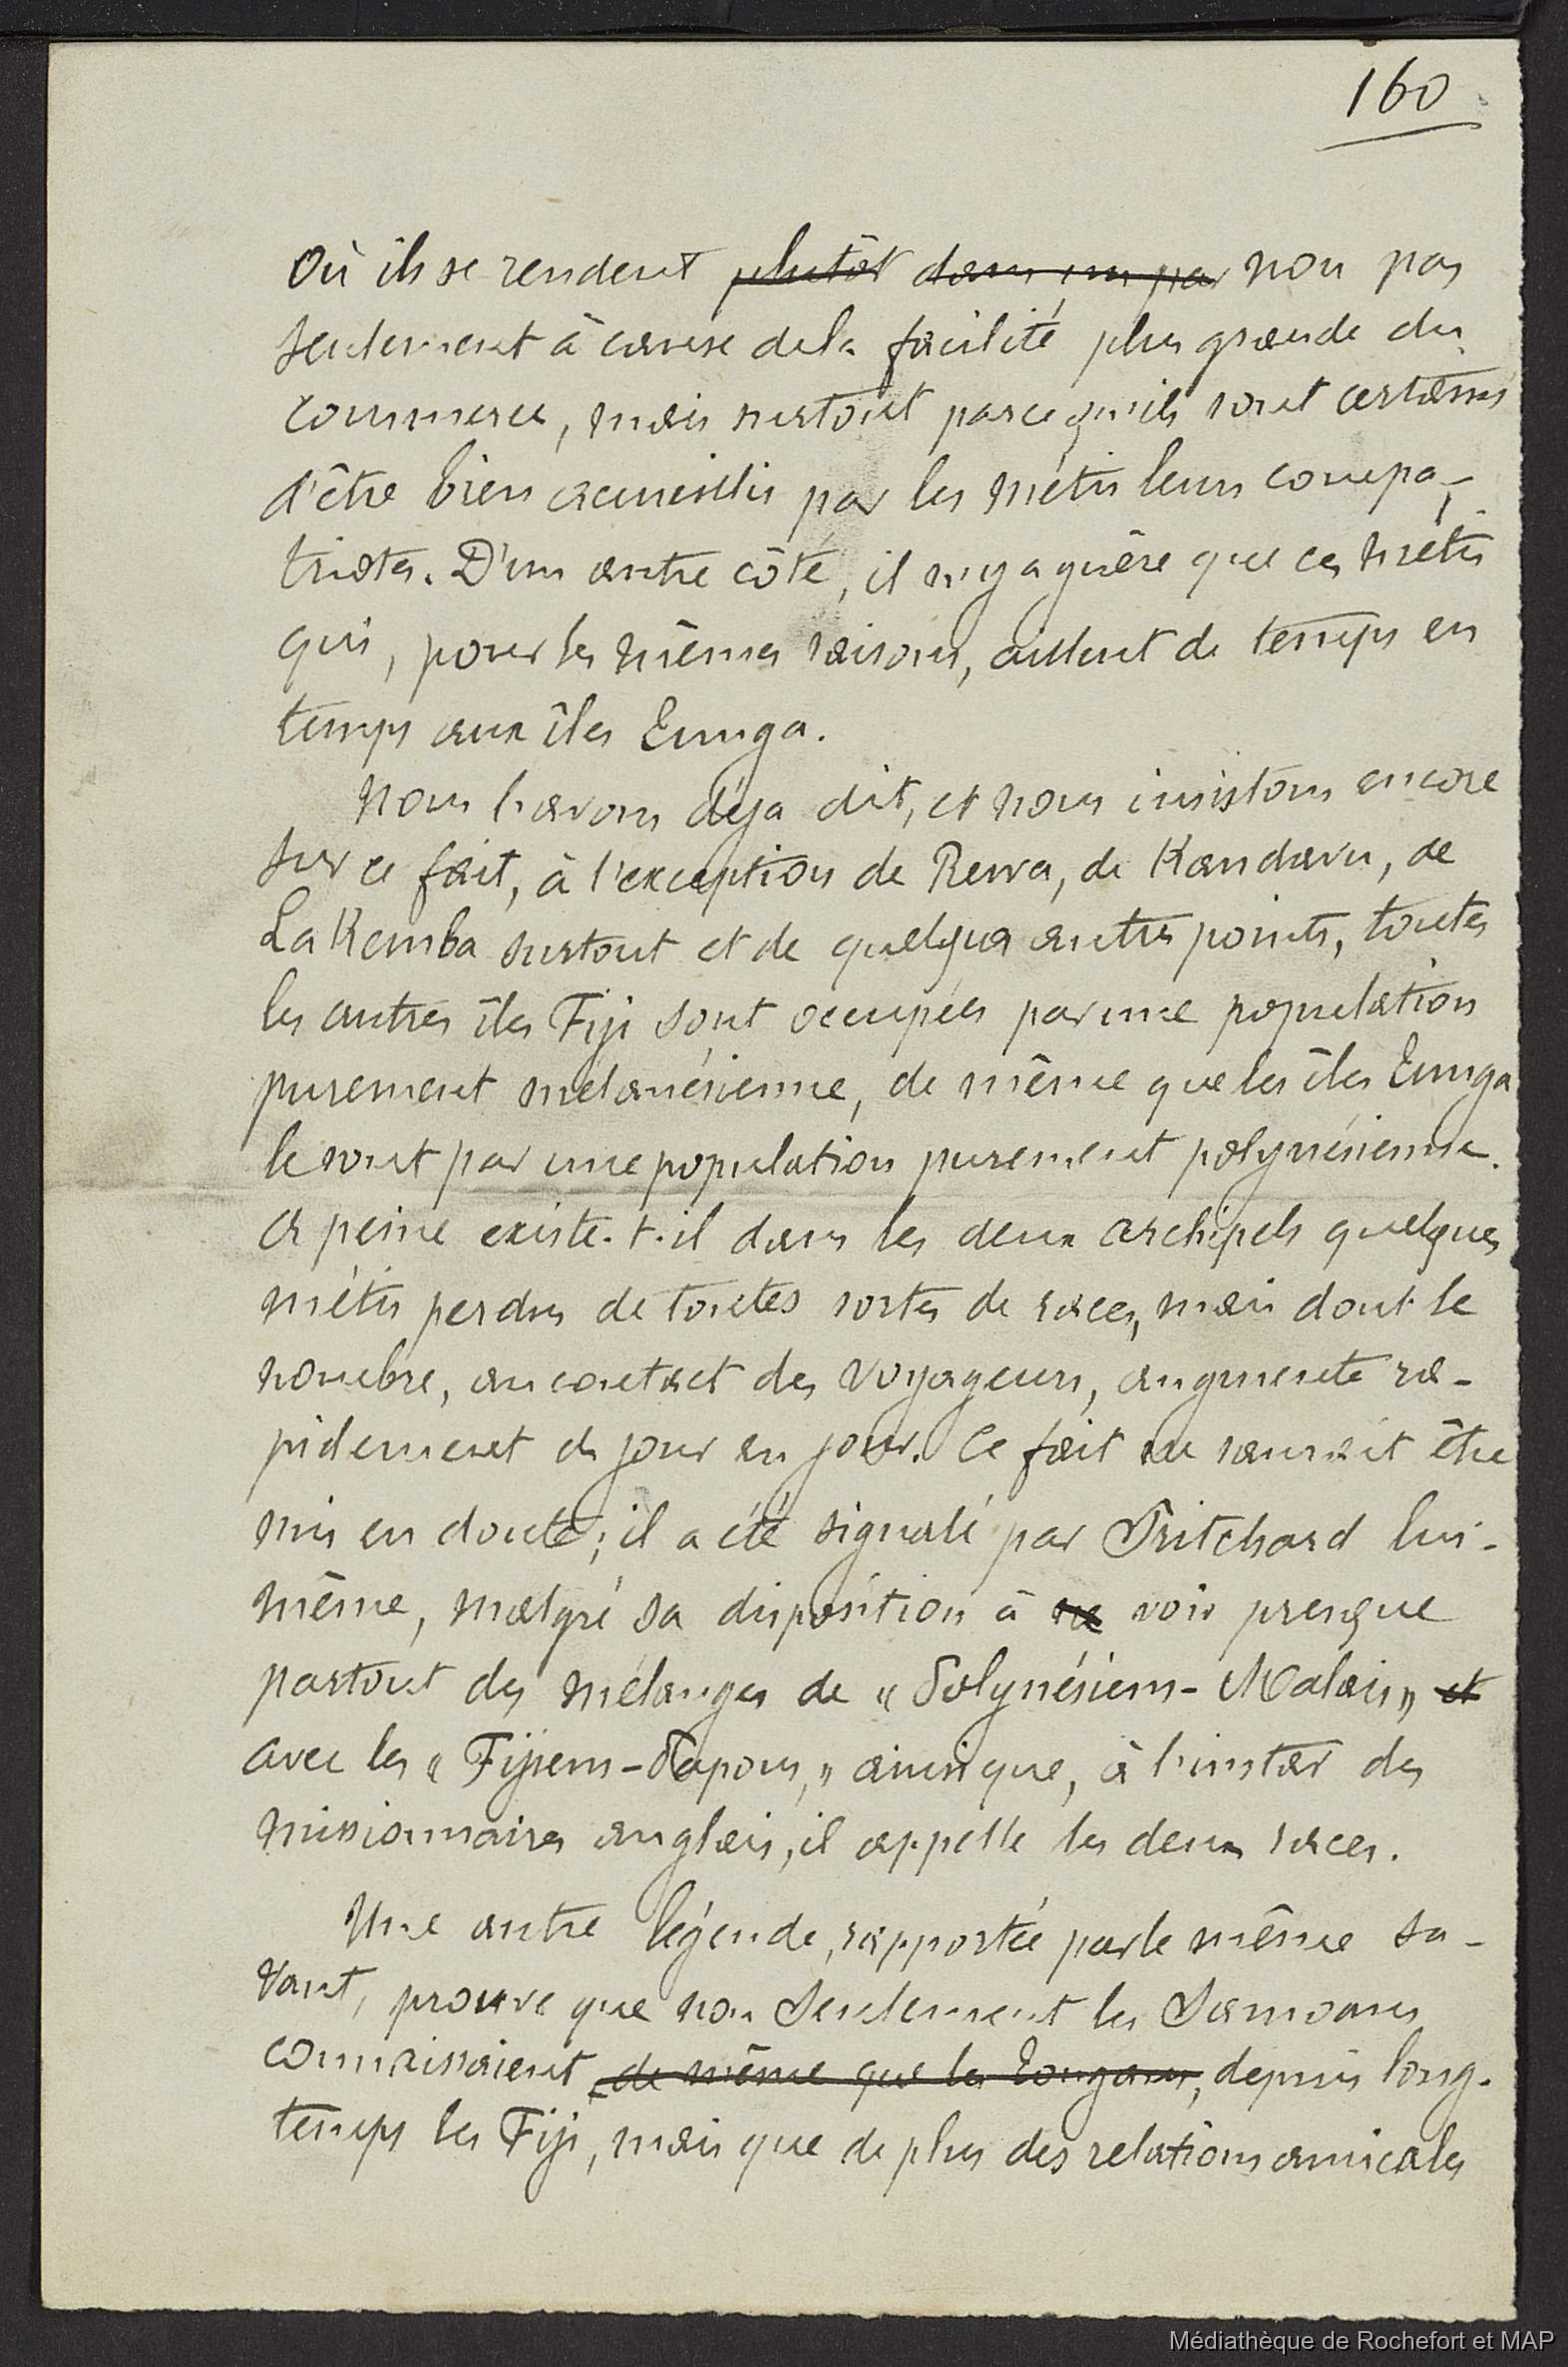 160
où ils se rendent plutôt dans un pa non pas
seulement à cause de la facilité plus grande du
commerce, mais surtout parce qu'ils sont certains
d'être bien accueillis par les métis leurs compa-
triotes. D'un autre côté, il n'y a guère que ces métis
qui, pour les mêmes raisons, aillent de temps en
temps aux îles Tunga.
Nous l'avons déja dit, et nous insistons encore
sur ce fait, à l'exception de Rewa, de Kandavu, de
La Kemba surtout et de quelques autres points, toutes
les autres îles Fiji sont occupées par une population
purement mélanésienne, de même que les îles Tunga
le sont par une population purement polynésienne.
A peine existe-t-il dans les deux archipels quelques
métis perdus de toutes sortes de races, mais dont le
nombre, au contact des voyageurs, augmente ra-
pidement de jour en jour. Ce fait ne saurait être
mis en doute; il a été signalé par Pritchard lui-
même, malgré sa disposition à ne voir presque
partout des mélanges de "Polynésiens-Malais" et
avec les "Fijiens-Papous," ainsi que, à l'instar des
missionnaires anglais, il appelle les deux races.
Une autre légende, rapportée par le même sa-
vant, prouve que non seulement les Samoans
connaissaient, de même que les Tongans, depuis long-
temps les Fiji, mais que de plus des relations amicales
Médiathèque de Rochefort et MAP